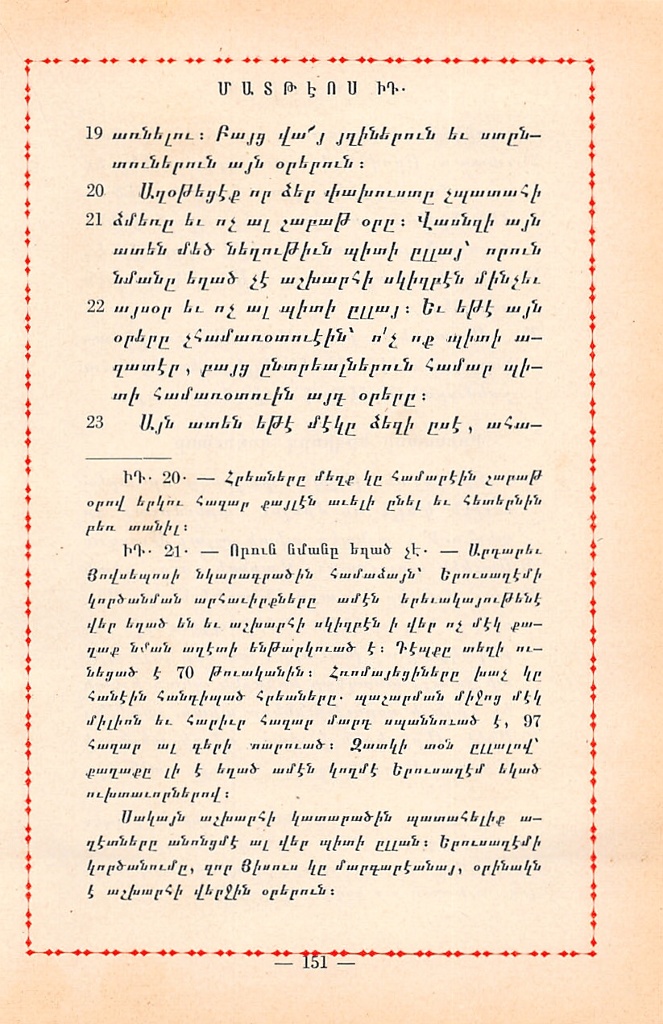 ՄԱՏԹԷՈՍ ԻԴ.
19 առնելու։ Բայց վա՜յ յղիներուն եւ ստըն—
տուներուն այն օրերուն։
20 Աղօթեցէք որ ձեր փախուստը չպատահի
21 ձմեռը եւ ոչ ալ շաբաթ օրը։ Վասնզի այն
ատեն մեծ նեղութիւն պիտի ըլլայ՝ որուն
նմանը եղած չէ աշխարհի սկիզբէն մինչեւ
22 այսօր եւ ոչ ալ պիտի ըլլայ։ Եւ եթէ այն
օրերը չհամառօտուէին՝ ո՛չ ոք պիտի ա—
զատէր, բայց ընտրեալներուն համար պի—
տի համառօտուին այդ օրերը։
23 Այն ատեն եթէ մէկը ձեզի ըսէ, ահա—
ԻԴ. 20. — Հրեաները մեղք կը համարէին շաբաթ
օրով երկու հազար քայլէն աւելի ընել եւ հետերնին
բեռ տանիլ։
ԻԴ. 21. — Որուն նմանը եղած չէ. — Արդարեւ
Յովսեպոսի նկարագրածին համաձայն՝ Երուսաղէմի
կործանման արհաւիրքները ամէն երեւակայութենէ
վեր եղած են եւ աշխարհի սկիզբէն ի վեր ոչ մէկ քա—
ղաք նման աղէտի ենթարկուած է։ Դէպքը տեղի ու—
նեցած է 70 թուականին։ Հռոմայեցիները խաչ կը
հանէին հանդիպած հրեաները. պաշարման միջոց մէկ
միլիոն եւ հարիւր հազար մարդ սպաննուած է, 97
հազար ալ գերի տարուած։ Զատկի տօն ըլլալով՝
քաղաքը լի է եղած ամէն կողմէ Երուսաղէմ եկած
ուխտաւորներով։
Սակայն աշխարհի կատարածին պատահելիք ա—
ղէտները անոնցմէ ալ վեր պիտի ըլլան։ Երուսաղէմի
կործանումը, զոր Յիսուս կը մարգարէանայ, օրինակն
է աշխարհի վերջին օրերուն։
— 151 —